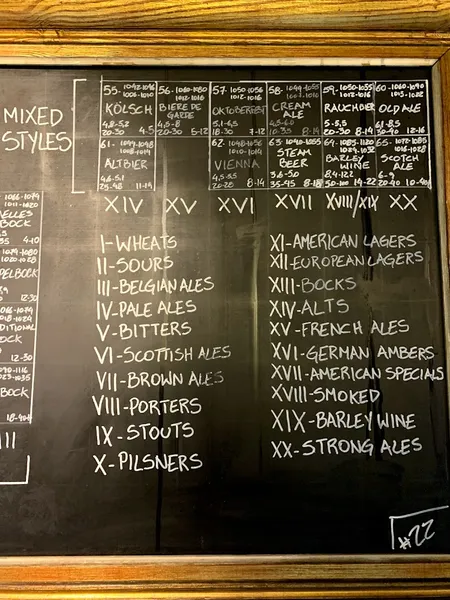 MIXED
STYLES
55- 1042-1046
1006-1010
KÖLSCH
4,8-5,2
20-30 4-5
56- 1060-1080
1012-1016
BIERE DE
GARDE
4,5-8
20-30 5-12
57- 1050-1056
1012-1016
OKTOBERFEST
5,1-6,5
18-30 7-12
58- 1044-1055
1007-1016
CREAM
ALE
4,5-6,0
10-35 8-14
59- 1050-1055
1012-1016
RAUCHBIER
5-5,5
20-30 8-14
60- 1060-1090
1015-1022
OLD ALE
6,1-8,5
30-40 12-16
61- 1044-1048
1008-1014
ALTBIER
4,6-5,1
25-48 11-19
62- 1048-1056
1012-1016
VIENNA
4,5-5,5
20-28 8-14
63- 1040-1055
1012-1018
STEAM
BEER
3,6-5,0
35-45 8-18
64- 1085-1120
1024-1032
BARLEY
WINE
8,4-12,2
50-100 14-22
65- 1072-1085
1016-1028
SCOTCH
ALE
6-9
20-40 10-40
XIV XV XVI XVII XVIII/XIX XX
1066-1079
1011-1020
ELLES
BOCK
4-10
1079-1080
1020-1028
PELBOCK
12-30
1018-1024
DITIONAL
OCK
12-30
90-1116
023-1035
BOCK
18-40
III
I-WHEATS
II-SOURS
III-BELGIAN ALES
IV-PALE ALES
V-BITTERS
VI-SCOTTISH ALES
VII-BROWN ALES
VIII-PORTERS
IX-STOUTS
X-PILSNERS
XI-AMERICAN LAGERS
XII-EUROPEAN LAGERS
XIII-BOCKS
XIV-ALTS
XV-FRENCH ALES
XVI-GERMAN AMBERS
XVII-AMERICAN SPECIALS
XVIII-SMOKED
XIX-BARLEY WINE
XX-STRONG ALES
#22